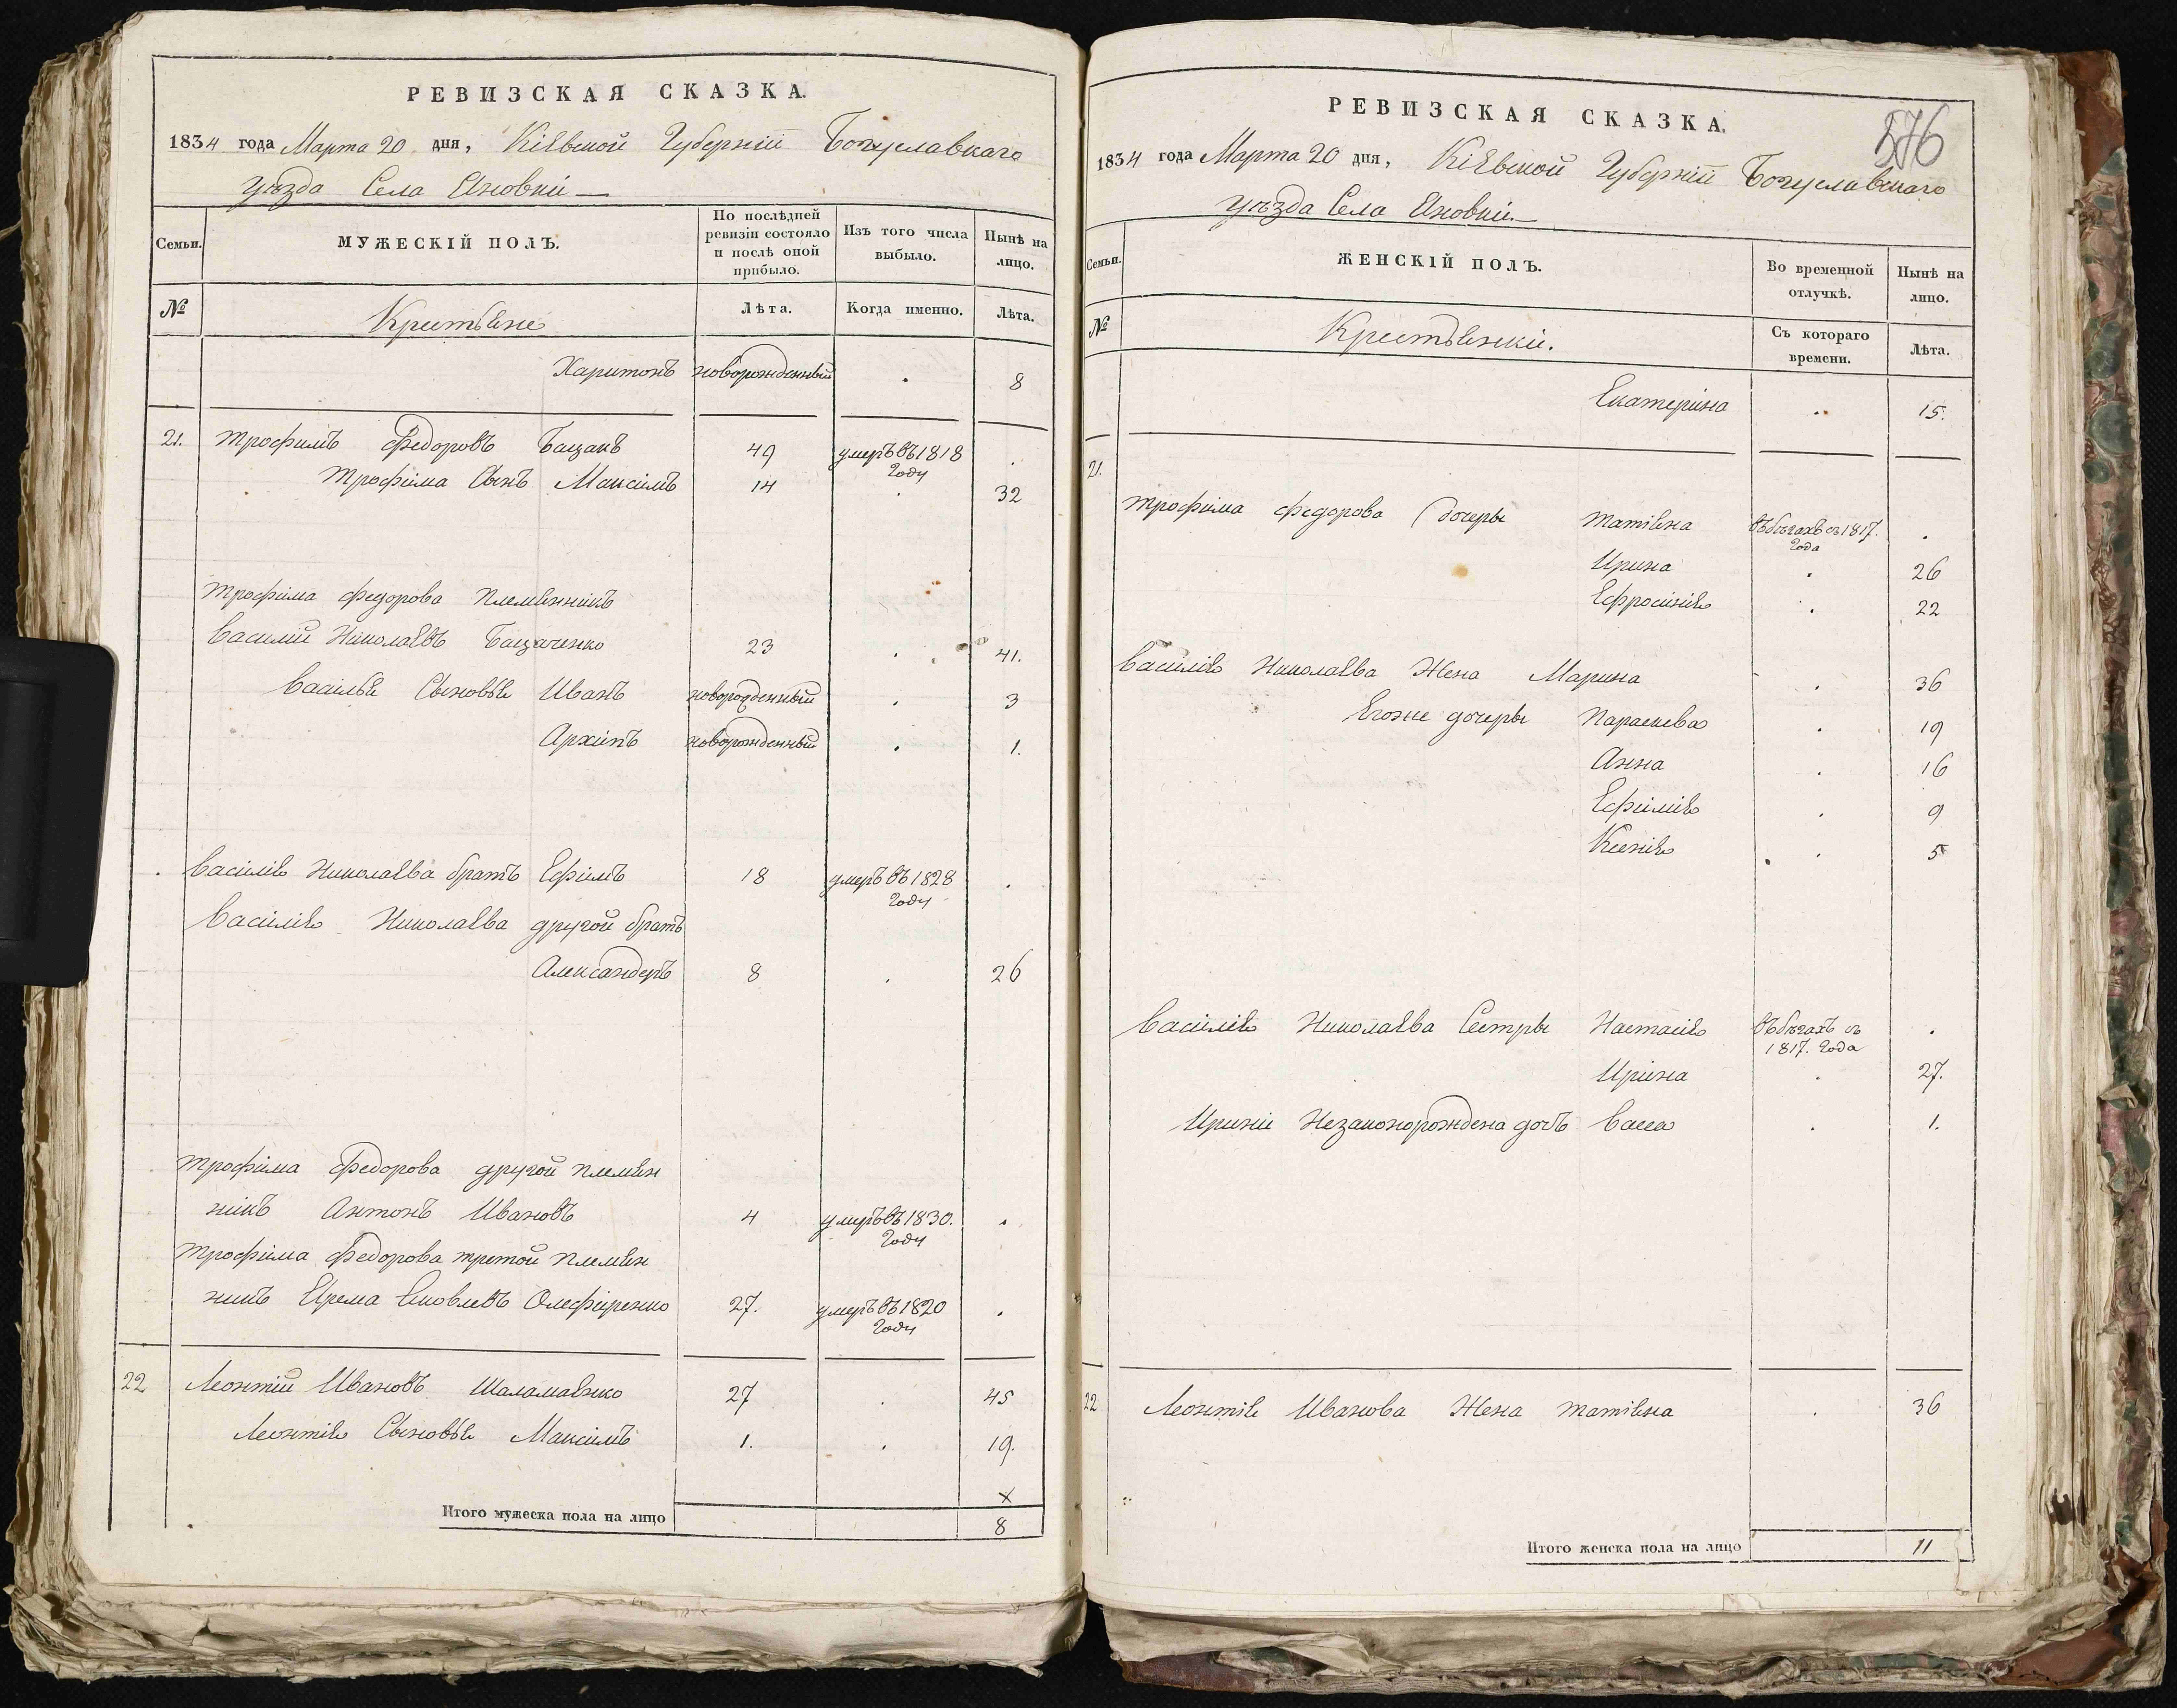 РЕВИЗСКАЯ СКАЗКА.
1834 года Марта 20 дня, Кіевской Губерніи Богуславкаго
уѣзда Села Яновки
Семьи.
МУЖЕСКІЙ ПОЛЪ.
По послѣдней
ревизіи состояло
и послѣ оной
прибыло.
Изъ того числа
выбыло.
Нынѣ на
лицо.
№
Крестьяне
Лѣта.
Когда именно.
Лѣта.
Харитонъ новорожденный . 8
21. Трофимъ Федоровъ Бацакъ 49 умеръ въ 1818 .
году
Трофима Сынъ Максимъ 14 . 32
Трофима Федорова Племянникъ
Василий Николаевъ Бацаченко 23 . 41.
Василья Сыновья Иванъ новорожденный . 3
Архипъ новорожденный . 1.
Василія Николаева братъ Ефимъ 18 умеръ въ 1828 .
году
Василія Николаева другой братъ
Александеръ 8 . 26
Трофима Федорова другой племян
никъ Антонъ Ивановъ 4 умеръ въ 1830. .
году
Трофима Федорова третой племян
никъ Ярема Яковлевъ Олефіренко 27. умеръ въ 1820 .
году
22 Леонтий Ивановъ Шаламаенко 27 . 45
Леонтія Сыновья Максимъ 1. . 19.
x
Итого мужеска пола на лицо 8
576
РЕВИЗСКАЯ СКАЗКА.
1834 года Марта 20 дня, Кіевской Губерніи Богуславскаго
уѣзда Села Яновки.
Семьи.
ЖЕНСКІЙ ПОЛЪ.
Во временной
отлучкѣ.
Нынѣ на
лицо.
№
Крестьянки.
Съ котораго
времени.
Лѣта.
Екатерина . 15.
21.
Трофима Федорова дочеры Татіяна въ бѣгахъ съ 1817. .
года
Ирина . 26
Ефросинія . 22
Василія Николаева Жена Марина . 36
Егоже дочеры Параскева . 19
Анна . 16
Ефимія . 9
Ксенія . 5
Василія Николаева Сестры Настасія въ бѣгахъ съ .
1817. года
Ирина . 27.
Ирини Незаконорождена дочь Васса . 1.
22 Леонтія Иванова Жена Татіяна . 36
Итого женска пола на лицо 11